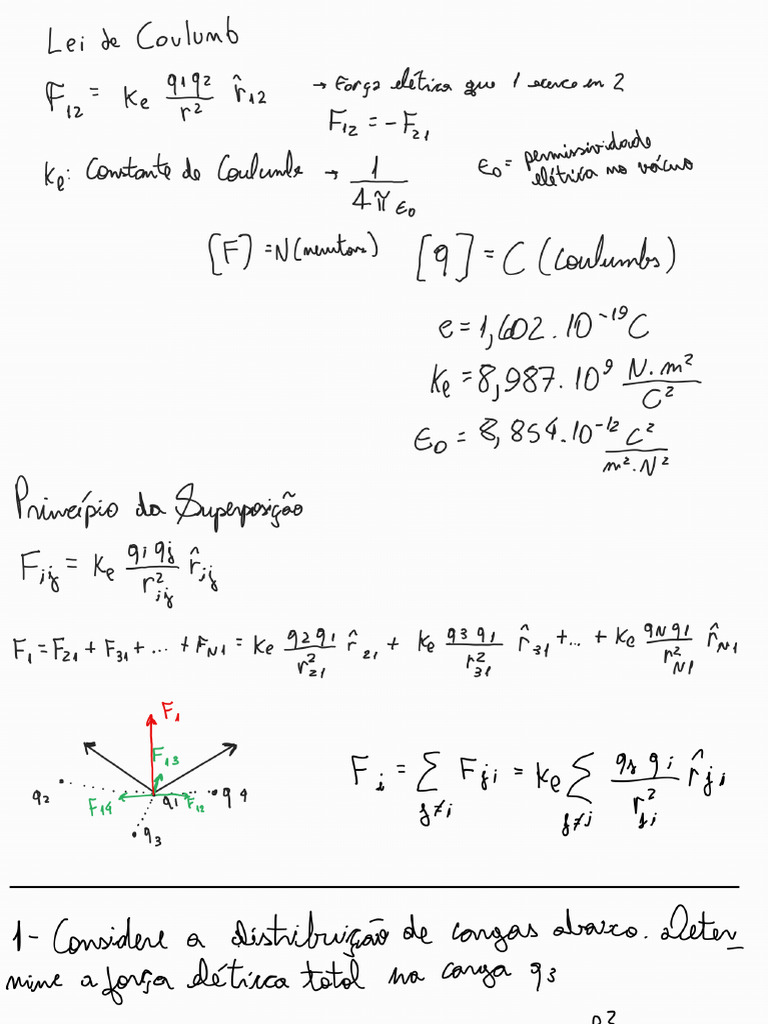 Lei de Coulumb
F₁₂ = Ke q₁q₂/r² r̂₁₂ → Força elétrica que 1 exerce em 2
F₁₂ = -F₂₁
Ke: Constante de Coulumb → 1/(4π ε₀) ε₀ = permissividade elétrica no vácuo
[F] = N (newtons) [q] = C (Coulumbs)
e = 1,602 . 10⁻¹⁹ C
Ke = 8,987 . 10⁹ N.m²/C²
ε₀ = 8,854 . 10⁻¹² C²/m².N²
Princípio da Superposição
Fij = Ke qi qj/r²ij r̂ij
F₁ = F₂₁ + F₃₁ + ... + FN1 = Ke q₂q₁/r²₂₁ r̂₂₁ + Ke q₃q₁/r²₃₁ r̂₃₁ + ... + Ke qNq₁/r²N1 r̂N1
F₁
F₁₃
q₂ F₁₄ q₁ F₁₂ q₄
q₃
Fi = Σ j≠i Fji = Ke Σ j≠i qj qi/r²ji r̂ji
1- Considere a distribuição de cargas abaixo. Deter_
mine a força elétrica total na carga q₃